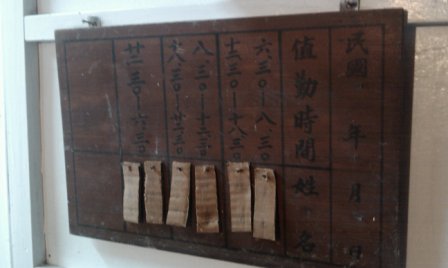 民國 年 月 日
值勤時間 姓名
六.三〇—八.三〇
十二.三〇—十八.三〇
八.三〇—十二.三〇
十八.三〇—廿二.三〇
廿二.三〇—六.三〇